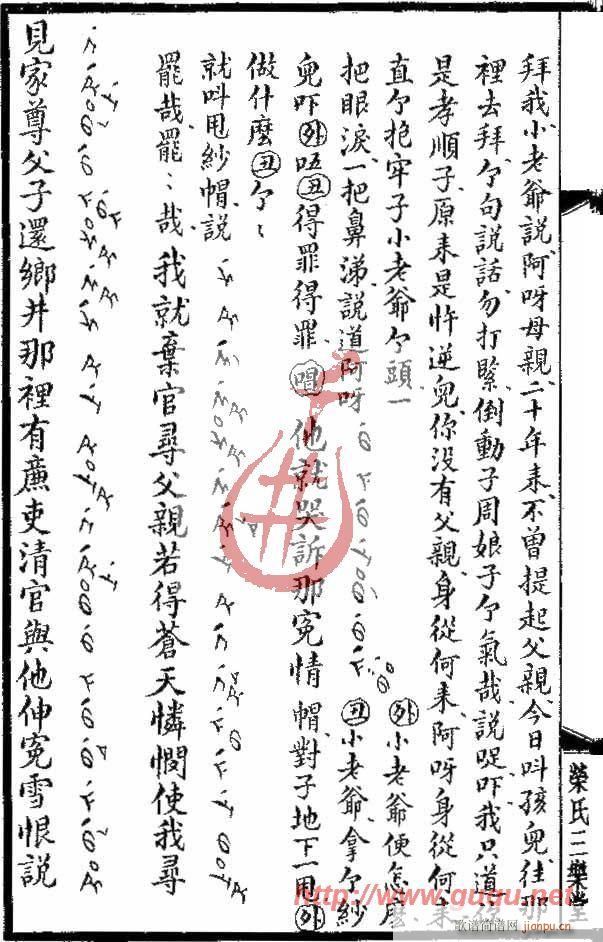 拜我小老爺說阿呀母親二十年來不曾提起父親今日叫孩兒往那
裡去拜个句說話勿打緊倒動子周娘子个氣哉說啶吓我只道
是孝順子原來是忤逆兒你沒有父親身從何來阿呀身從何來
直个抱牢子小老爺个頭一
外小老爺便怎麼
把眼淚一把鼻涕說道阿呀
丑小老爺拿个紗
兒吓外唔丑得罪得罪唱他就哭訴那冤情帽對子地下一甩外
做什麼丑个
就叫甩紗帽說
罷哉罷哉我就棄官尋父親若得蒼天憐憫使我尋
見家尊父子還鄉井那裡有廉吏清官與他伸冤雪恨說
榮氏三樂堂
http://www.guqu.net
歌谱简谱网
jianpu.cn